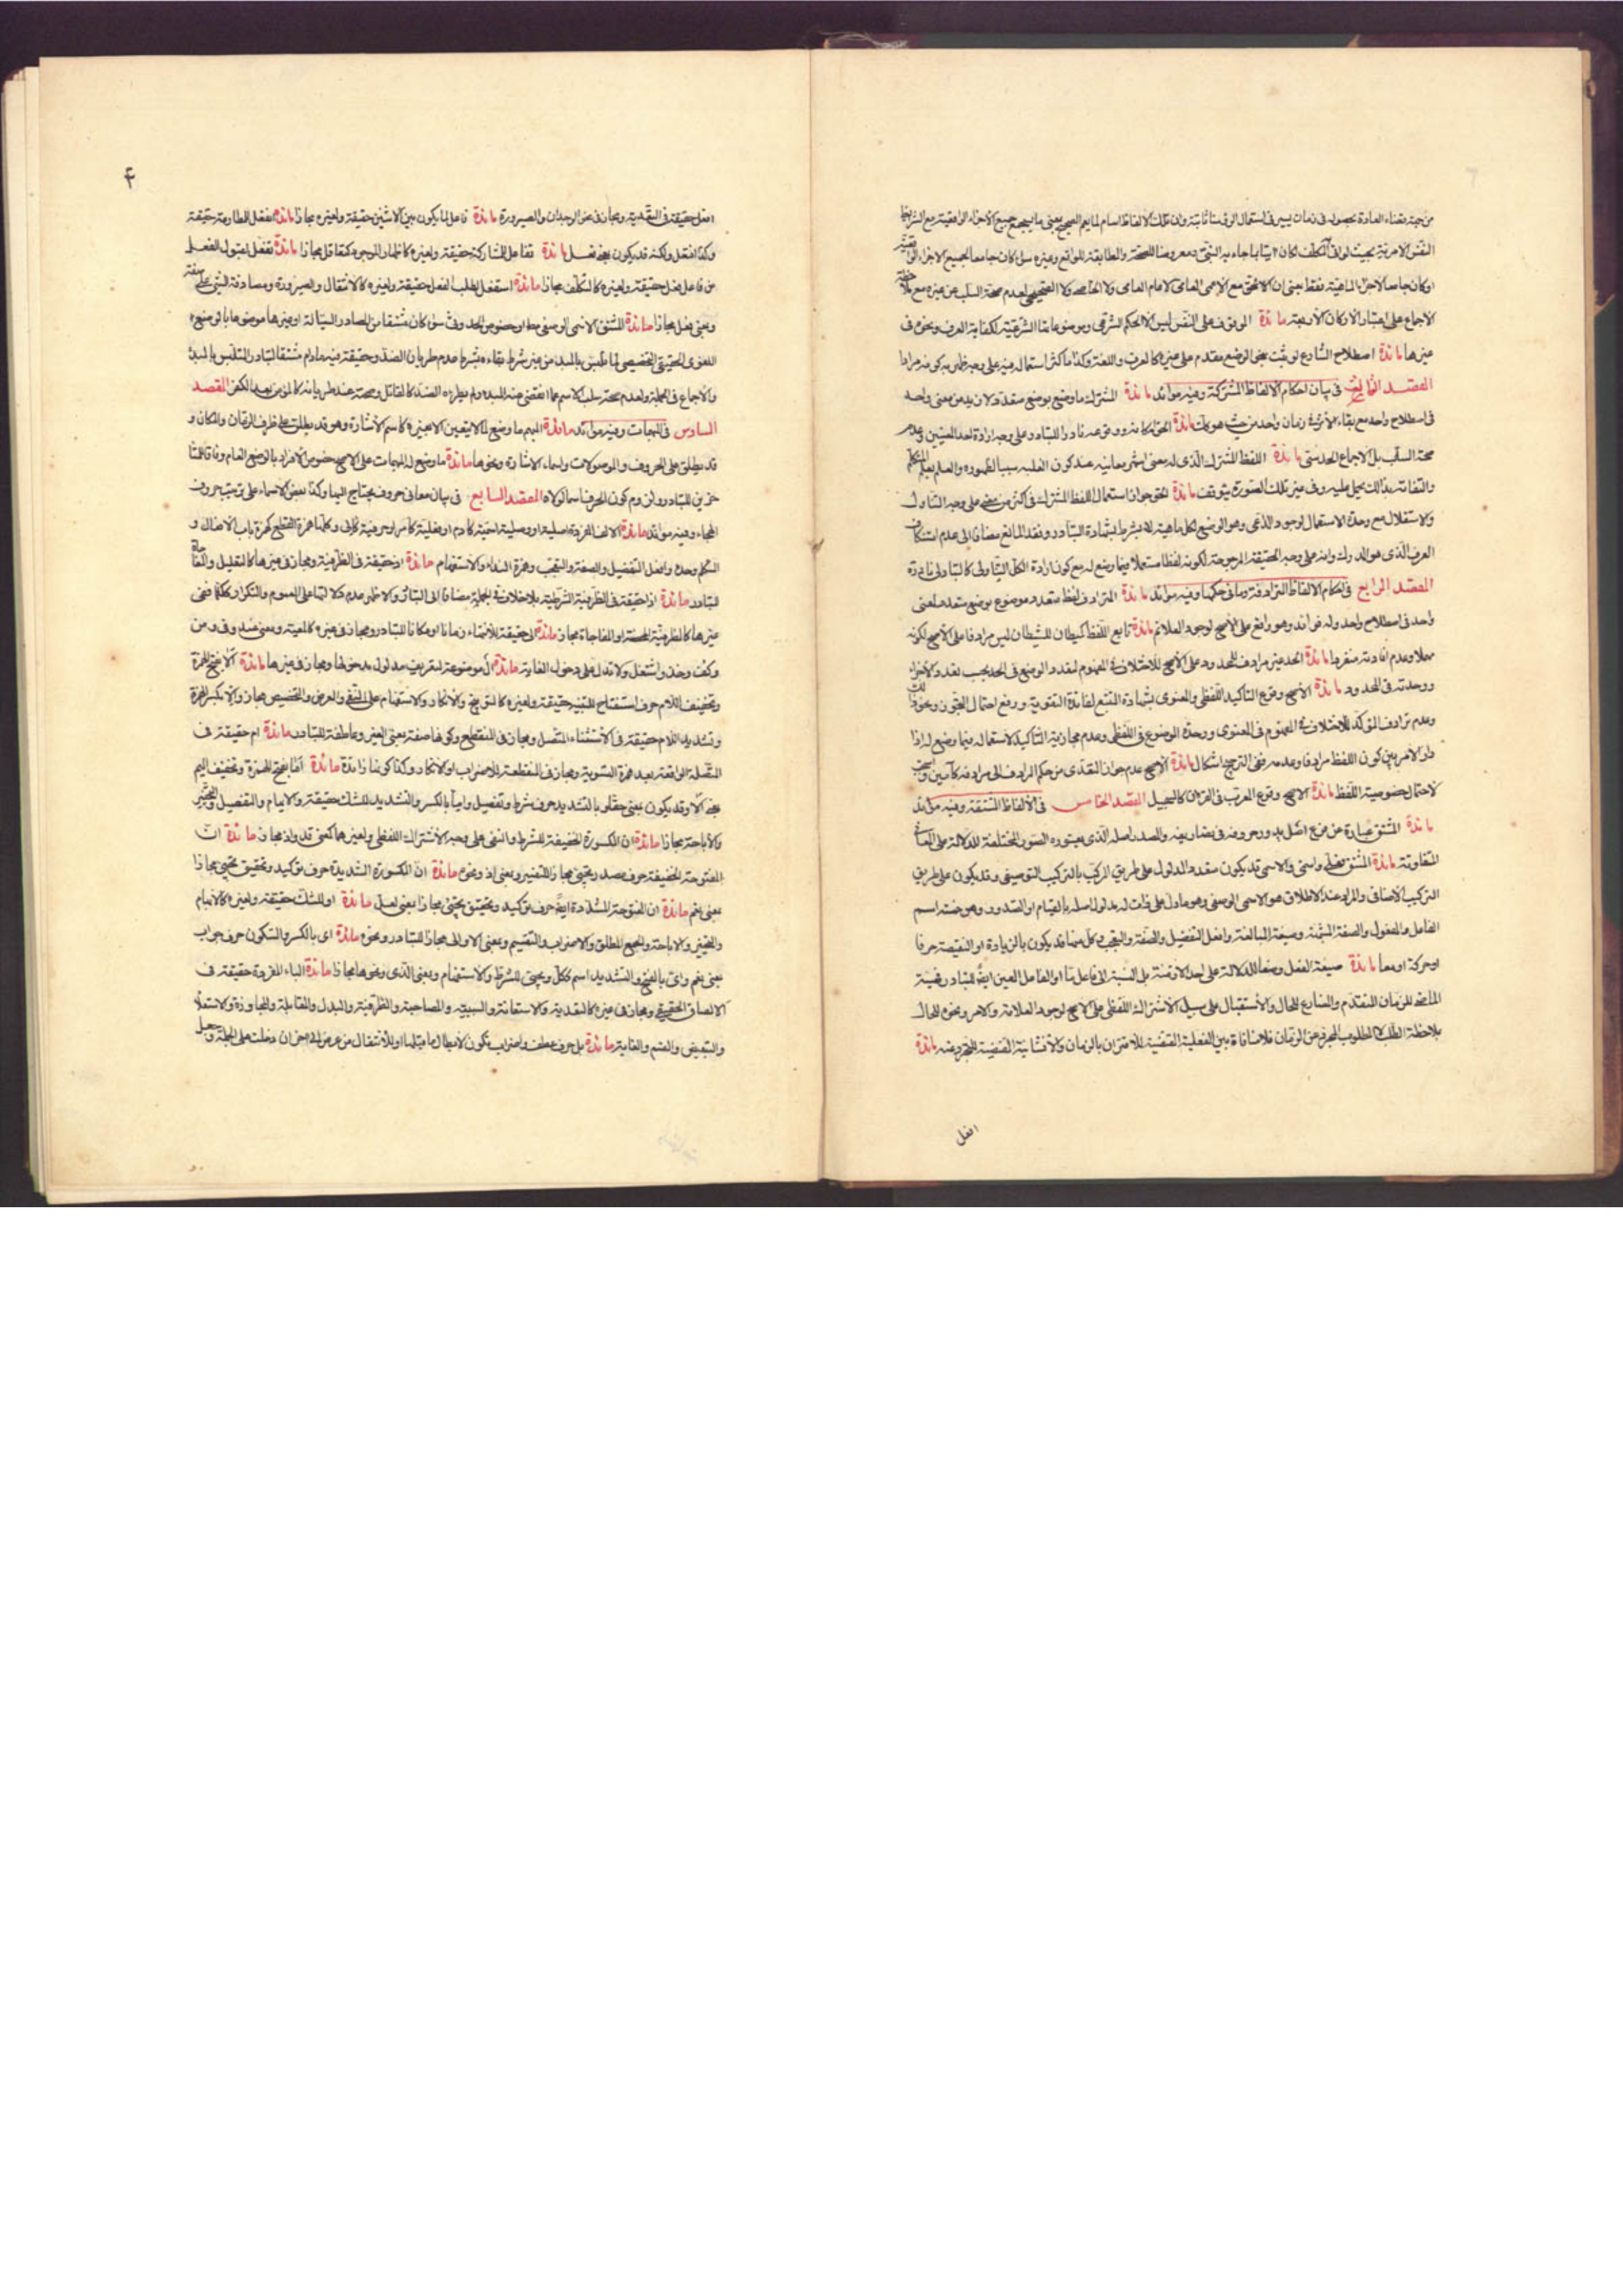 من جهة قضاء العادة بحصوله في زمان يسير في استعمال الوقت
النفس الامرية بحيث
او كان جامعا لاجزاء الماهية فقط بمعنى ان
الاجماع على اعتبار الاركان الاربعة مائدة الموقوف على النفس ليس الا الحكم الشرعي وموضوعاتها الشرعية لكفاية العرف ونحوه في
غيرها مائدة اصطلاح الشارع لو ثبت بمعنى الوضع مقدم على غيره كالعرف واللغة وكذا ما كثر استعماله فيه على وجه ظهر به كونه مرادا
المقصد الثالث في بيان احكام الالفاظ المشتركة وفيه موائد مائدة المشترك ما وضع بوضع متعدد لازيد من معنى واحد
في اصطلاح واحد مع بقاء الاثر في زمان واحد من حيث هو كذلك مائدة الحق امكانه ووقوعه نادرا للتبادر على وجه ارادة احد المعنيين وعدم
صحة السلب بل الاجماع الحدسي مائدة اللفظ المشترك الذي له معنى اشهر معانيه عند كون الغلبة سببا لظهوره والعلم بعلم المتكلم
والتفاته بذلك يحمل عليه وفي غير تلك الصورة يتوقف مائدة الحق جواز استعمال اللفظ المشترك في اكثر من معنى على وجه التناول
والاستقلال مع وحدة الاستعمال لوجود الداعي وهو الوضع لكل ماهية لا بشرط بشهادة التبادر وفقد المانع مضافا الى عدم استنكاف
العرف الذي هو المدرك وانه على وجه الحقيقة المرجوحة لكونه لفظا مستعملا فيما وضع له مع كون ارادة الكل
المقصد الرابع في احكام الالفاظ المترادفة وما في حكمها وفيه موائد مائدة المترادف لفظ متعدد موضوع بوضع متعدد لمعنى
واحد في اصطلاح واحد وله فوائد وهو واقع على الاصح لوجود العلائم مائدة تابع اللفظ كليطان للشيطان ليس مرادفا على الاصح لكونه
مهملا وعدم افادته منفردا مائدة الحد غير مرادف للمحدود على الاصح للاختلاف في المفهوم لتعدد الوضع في الحد بحسب تعدد الاجزاء
ووحدته في المحدود مائدة الاصح وقوع التاكيد اللفظي والمعنوي بشهادة التتبع لفائدة التقوية ورفع احتمال التجوز ونحو ذلك
وعدم ترادف المؤكد للاختلاف في المفهوم في المعنوي ووحدة الموضوع في اللفظي وعدم مجازية التاكيد لاستعماله فيما وضع له اذا
دار الامر بين كون اللفظ مرادفا وعدمه ففي الترجيح اشكال مائدة الاصح عدم جواز التعدي من حكم المرادف الى مرادفه كآمين واستجب
لاحتمال خصوصية اللفظ مائدة الاصح وقوع المعرب في القرآن كالسجيل المقصد الخامس في الالفاظ المشتقة وفيه موائد
مائدة المشتق عبارة عن فرع اصل يدور حروفه في تصاريفه والمصدر اصله الذي يعتوره الصور المختلفة للدلالة على المعاني
المتفاوتة مائدة المشتق فعلي واسمي والاسمي قد يكون متعدد المدلول على طريق المركب بالتركيب التوصيفي وقد يكون على طريق
التركيب الاضافي والمراد عند الاطلاق هو الاسمي الوصفي وهو ما دل على ذات له مدلول اصله بالقيام او الصدور وهو خمسة اسم
الفاعل والمفعول والصفة المشبهة وصيغة المبالغة وافعل التفضيل والصفة والتعجب وكل منها قد يكون بالزيادة او النقيصة حرفا
او حركة او معا مائدة صيغة الفعل وضعا للدلالة على احد الازمنة بل النسبة الى فاعل ما او الفاعل المعين ايضا للتبادر فهيئة
الماضي للزمان المتقدم والمضارع للحال والاستقبال على سبيل الاشتراك اللفظي على الاصح لوجود العلامة والامر ونحوه للحال
بملاحظة الطلب لا المطلوب المجرد عن الزمان فلا منافاة بين الفعلية المقتضية للاقتران بالزمان والانشائية المقتضية للتجرد عنه مائدة
افعل
۴
افعل حقيقة في التعدية ومجاز في نحو الوجدان والصيرورة مائدة فاعل لما يكون بين الاثنين حقيقة ولغيره مجازا مائدة انفعل للمطاوعة حقيقة
وكذا افتعل ولكنه قد يكون بمعنى تفعل مائدة تفاعل للمشاركة حقيقة ولغيره كاظهار الموجود كتغافل مجازا مائدة تفعل لقبول الفعل
من فاعل فعل حقيقة ولغيره كالتكلف مجازا مائدة استفعل لطلب الفعل حقيقة ولغيره كالانتقال والصيرورة ومصادفة الشيء على صفته
وبمعنى فعل مجازا مائدة المشتق الاسمي الوصفي
اللغوي الحقيقي التخصيصي لما تلبس بالمبدء من غير شرط بقاءه بشرط عدم طريان الضد وحقيقة فيه ما دام مشتقا لتبادر المتلبس بالمبدء
والاجماع في الجملة ولعدم صحة سلب الاسم عما انقضى عنه المبدء ولم يطرءه الضد كالقاتل وصحته عند طريانه كالمؤمن بعد الكفر المقصد
السادس في المبهمات وفيه موائد مائدة المبهم ما وضع لما لا يتعين الا بغيره كاسم الاشارة وهو قد يطلق على ظرف الزمان والمكان و
قد يطلق على الحروف والموصولات واسماء الاشارة ونحوها مائدة ما وضع له المبهمات على الاصح خصوص الافراد بالوضع العام وفاقا للمتأ
خرين للتبادر ولزوم كون الحرف اسما لولاه المقصد السابع في بيان معاني حروف يحتاج اليها وكذا بعض الاسماء على ترتيب حروف
الهجاء وفيه موائد مائدة الالف المفردة
المتكلم وحده وافعل التفضيل والصفة والتعجب وهمزة النداء والاستفهام مائدة اذ حقيقة في الظرفية ومجاز في غيرها كالتعليل والمفاجاة
للتبادر مائدة اذا حقيقة في الظرفية الشرطية
غيرها كالظرفية المحضة او المفاجاة مجاز مائدة الى حقيقة للانتهاء زمانا او مكانا للتبادر ومجاز في غيره كالمعية وبمعنى عند وفي ومن
ولا تدل على دخول الغاية مائدة ال موضوعة لتعريف مدلول مدخولها ومجاز في غيرها مائدة الا بفتح الهمزة
وتخفيف اللام حرف استفتاح للتنبيه حقيقة ولغيره كالتوبيخ والانكار والاستفهام على النفي والعرض والتحضيض مجاز والا بكسر الهمزة
وتشديد اللام حقيقة في الاستثناء المتصل ومجاز في المنقطع وكونها صفة بمعنى الغير وعاطفة للتبادر مائدة ام حقيقة في
المتصلة الواقعة بعد همزة التسوية ومجاز في المنقطعة للاضراب او الانكار وكذا كونها زائدة مائدة اما بفتح الهمزة وتخفيف الميم
بمعنى الا وقد يكون بمعنى حقا وبالتشديد حرف شرط وتفصيل واما بالكسر والتشديد للشك حقيقة والابهام والتفصيل والتخيير
والاباحة مجازا مائدة ان المكسورة الخفيفة للشرط والنفي على وجه الاشتراك اللفظي ولغيرهما كمعنى قد واذ مجاز مائدة ان
المفتوحة الخفيفة حرف مصدر ويجيء مجازا للتفسير وبمعنى اذ ونحوه مائدة ان المكسورة الشديدة حرف توكيد وتحقيق يجيء مجازا
بمعنى نعم مائدة ان المفتوحة المشددة ايضا حرف توكيد وتحقيق يجيء مجازا بمعنى لعل مائدة او للشك حقيقة ولغيره كالابهام
والتخيير والاباحة والجمع المطلق والاضراب والتقسيم وبمعنى الا والى مجازا للتبادر ونحوه مائدة اي بالكسر والسكون حرف جواب
بمعنى نعم واي بالفتح والتشديد اسم ككل ويجيء للشرط والاستفهام وبمعنى الذي ونحوها مجازا مائدة الباء المفردة حقيقة في
الالصاق الحقيقي ومجاز في غيره كالتعدية والاستعانة والسببية والمصاحبة والظرفية والبدل والمقابلة والمجاوزة والاستعلاء
والتبعيض والقسم والغاية مائدة بل حرف عطف واضراب تكون لابطال ما قبلها او للانتقال من غرض الى اخر ان دخلت على الجملة